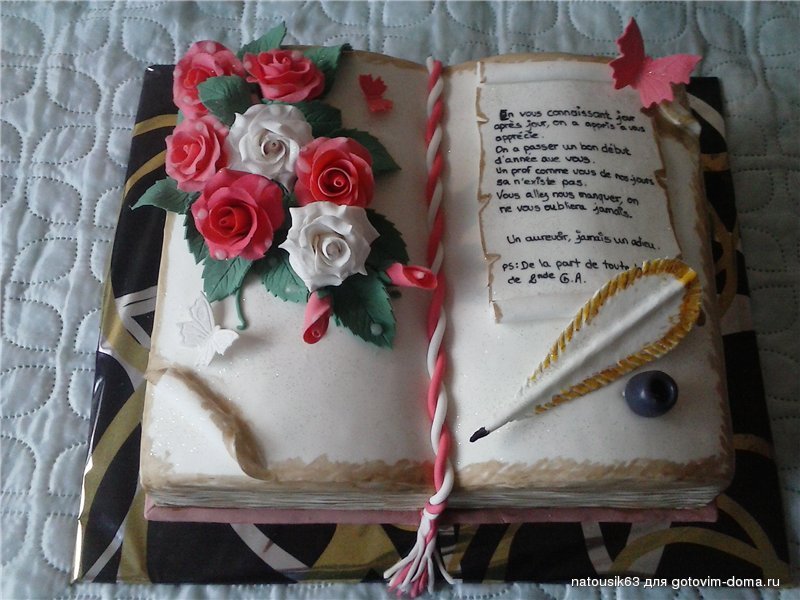 En vous connaissant jour
après jour, on a appris a vous
apprécié.
On a passer un bon début
d'année avec vous.
Un prof comme vous de nos jours
sa n'existe pas.
Vous allez nous manquer, on
ne vous oubliera jamais.
Un aurevoir, jamais un adieu.
ps: De la part de toute
de 2nde G.A.
natousik63 для gotovim-doma.ru